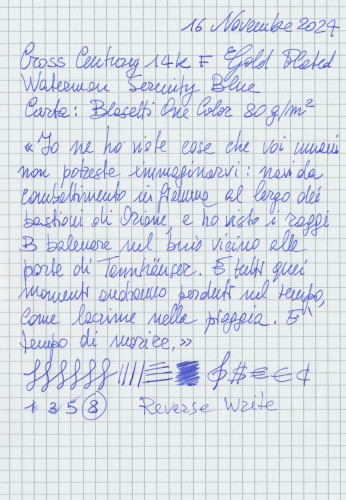 16 Novembre 2024
Cross Century 14k F Gold Plated
Waterman Serenity Blue
Carta: Blasetti One Color 80 g/m²
«Io ne ho viste cose che voi umani
non potreste immaginarvi: navi da
combattimento in fiamme al largo dei
bastioni di Orione, e ho visto i raggi
B balenare nel buio vicino alle
porte di Tannhäuser. E tutti quei
momenti andranno perduti nel tempo,
come lacrime nella pioggia. E'
tempo di morire.»
$ € € ¢
1 3 5 8 Reverse Write